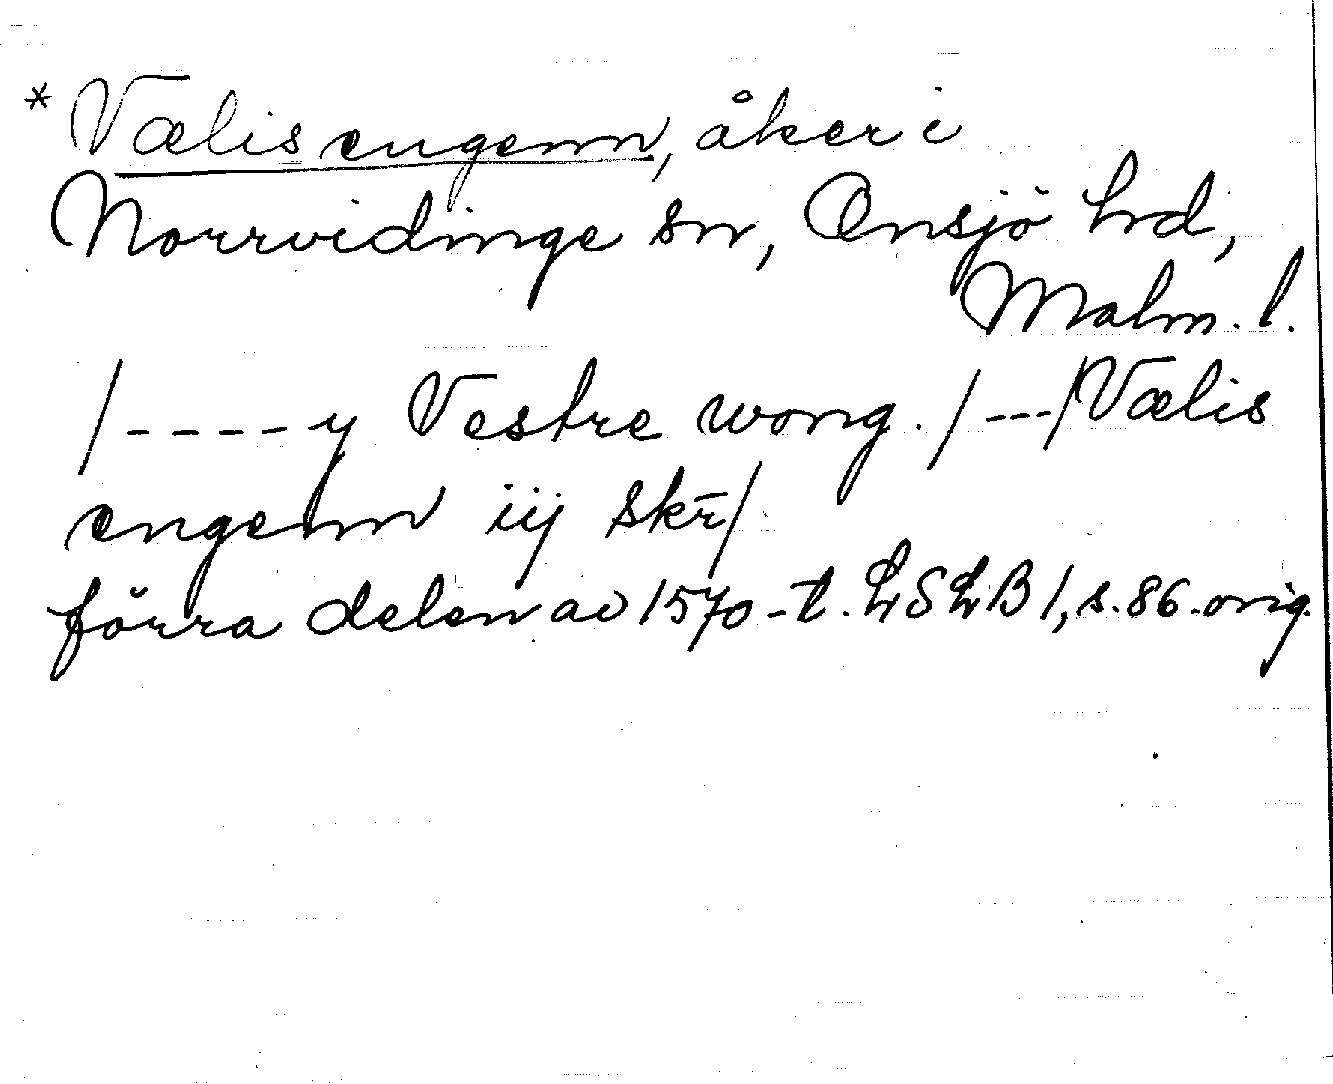 * Vælis engenn, åker i
Norrvidinge sn, Onsjö hd,
Malm. l.
/----y Vestre wong. /---/Vælis
engenn iij skr̄/
förra delen av 1570-t. LSLB 1, s. 86. orig.